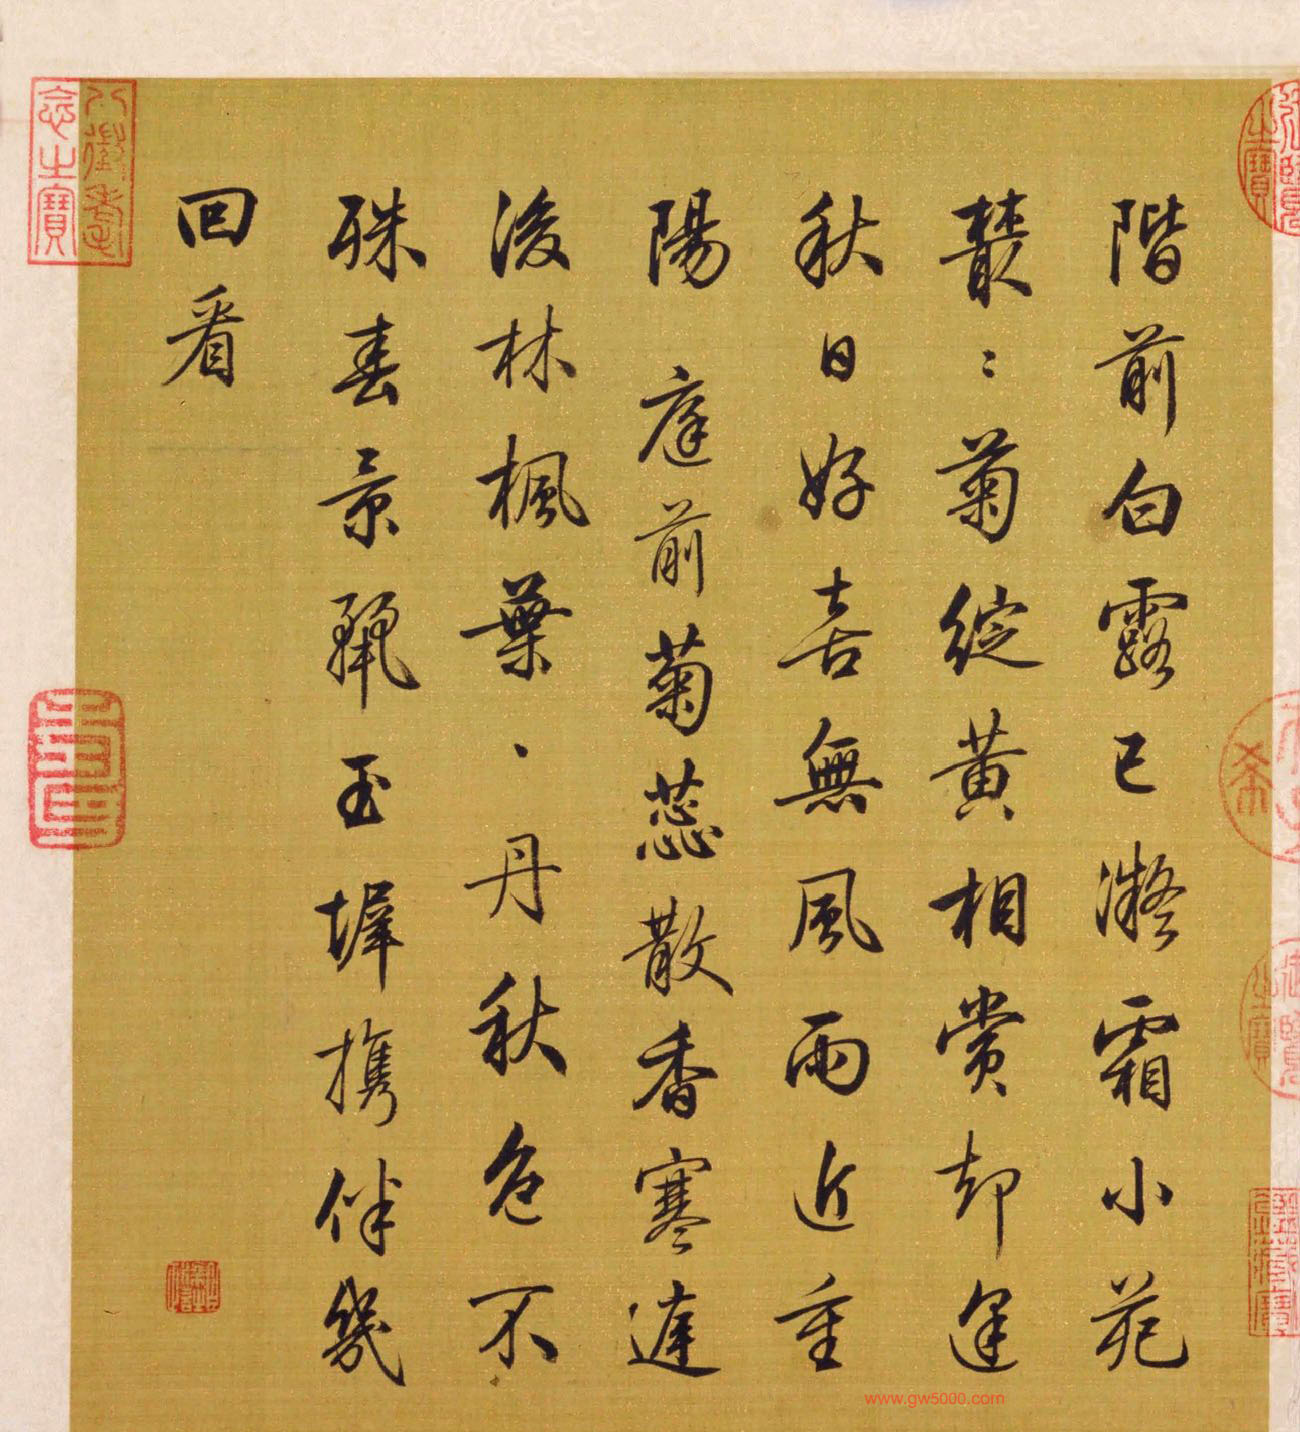 階前白露已凝霜小苑
叢〻菊綻黃相賞却逢
秋日好喜無風雨近重
陽 庭前菊蕊散香寒達
後林楓葉、丹秋色不
殊春景麗玉墀携伴幾
回看
八徵耄念之寶
壽
www.gw5000.com